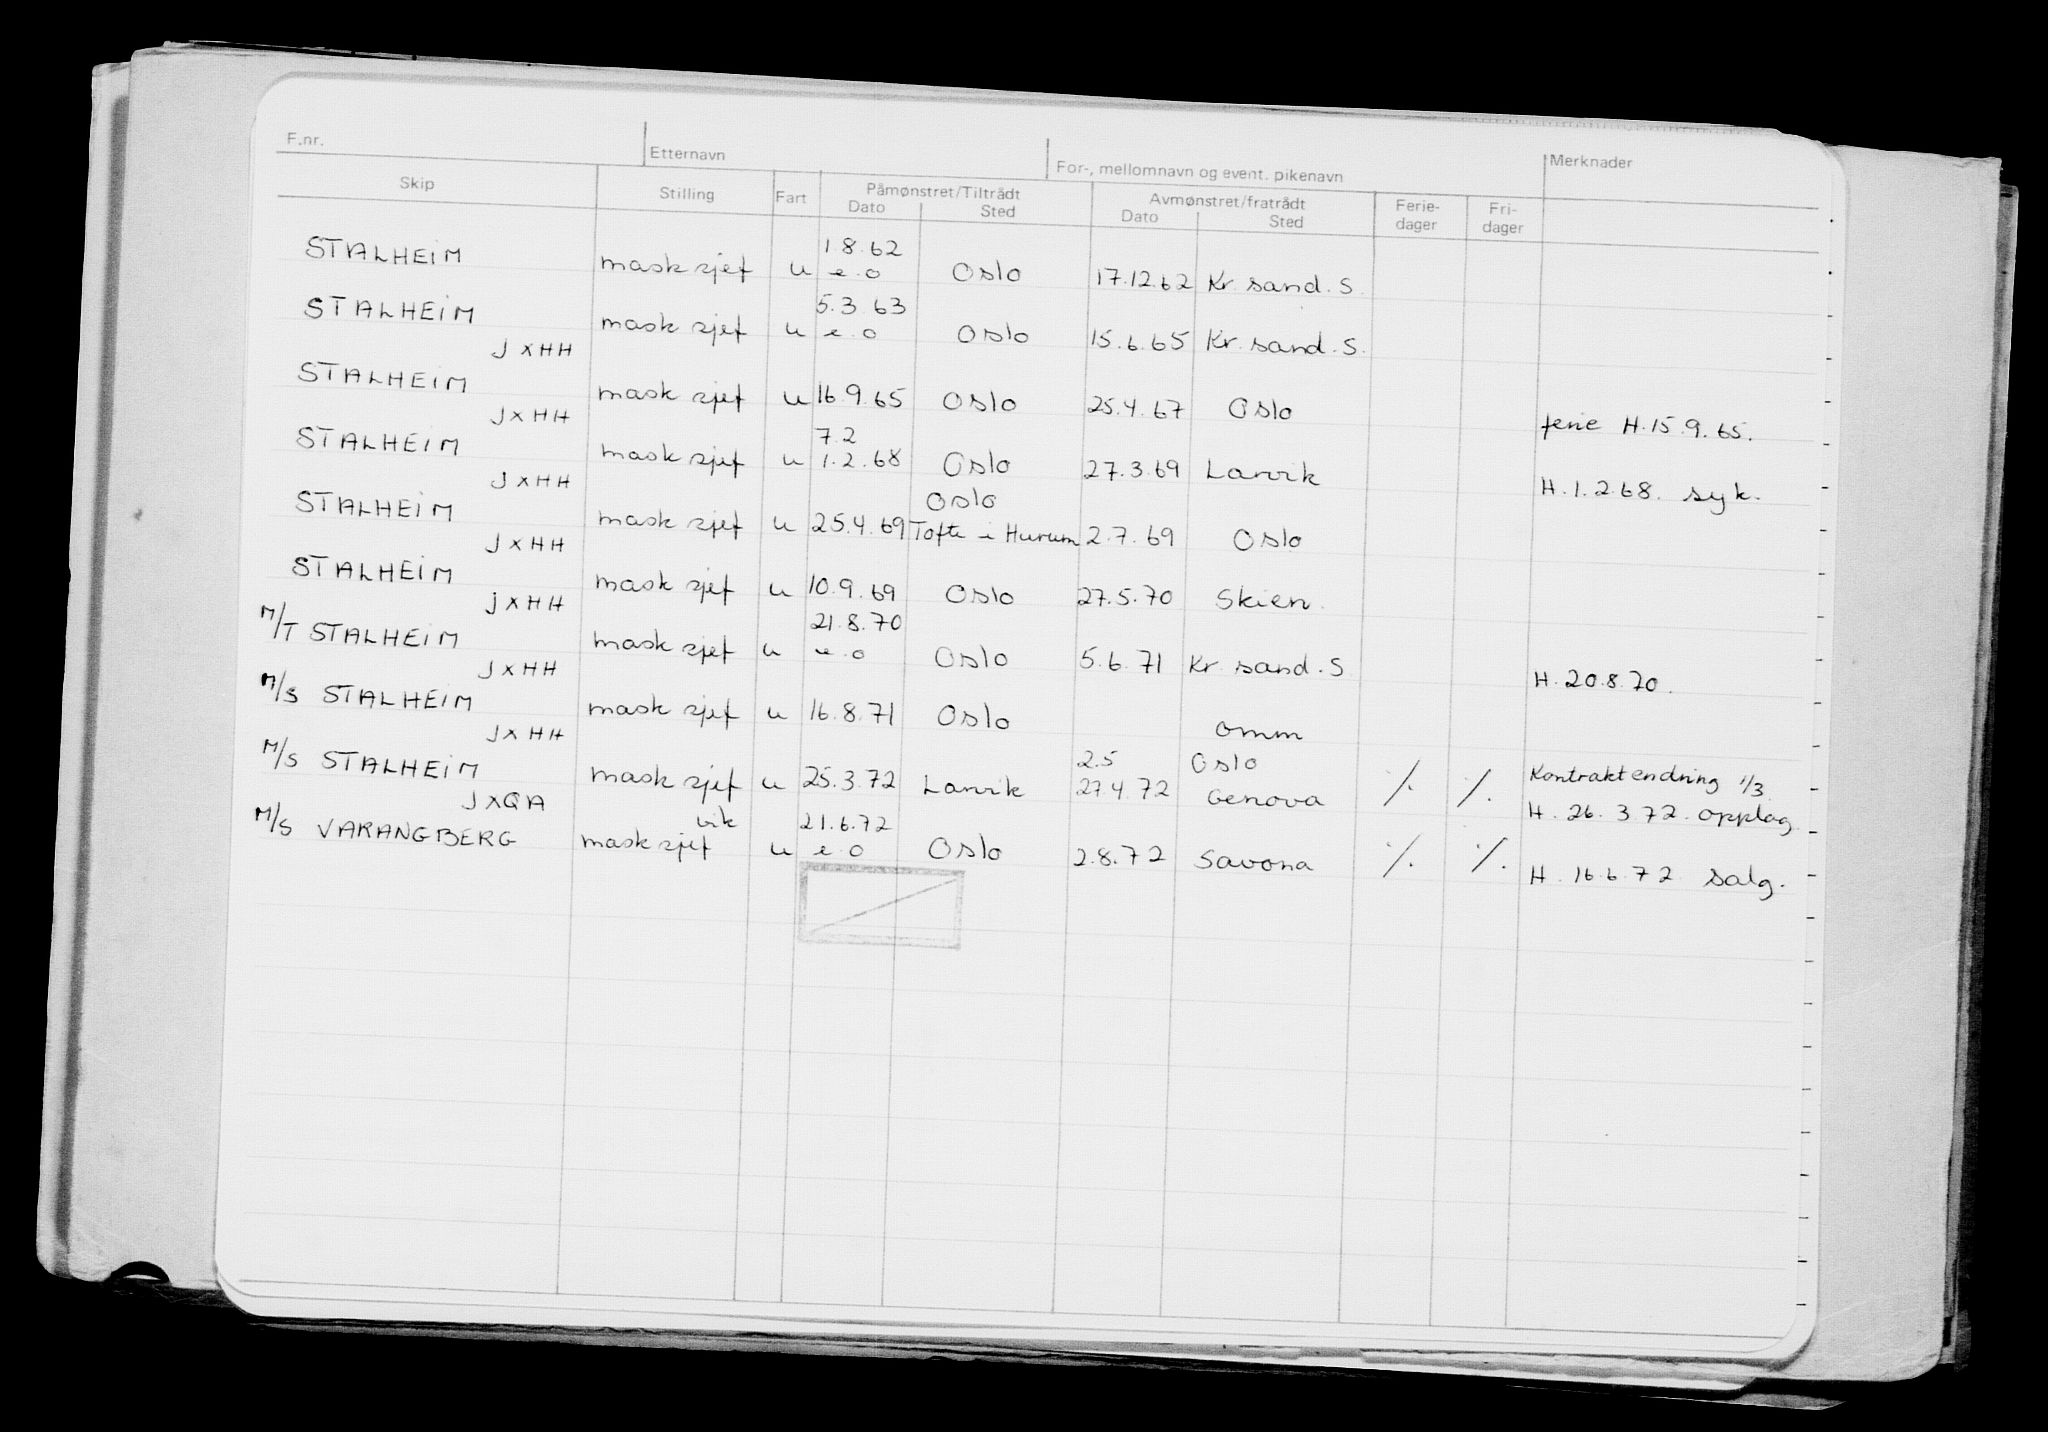 F.nr. Etternavn For-, mellomnavn og event. pikenavn Merknader
Skip Stilling Fart Påmønstret/Tiltrådt Avmønstret/fratrådt Ferie- Fri-
Dato Sted Dato Sted dager dager
1.8.62
STALHEIM mask sjef u e.o Oslo 17.12.62 Kr. sand. S.
5.3.63
STALHEIM mask sjef u e.o Oslo 15.6.65 Kr. sand. S.
JXHH
STALHEIM mask sjef u 16.9.65 Oslo 25.4.67 Oslo ferie H.15.9.65.
JXHH
7.2
STALHEIM mask sjef u 1.2.68 Oslo 27.3.69 Larvik H.1.2.68. syk.
JXHH
Oslo
STALHEIM mask sjef u 25.4.69 Tofte i Hurum 2.7.69 Oslo
JXHH
STALHEIM mask sjef u 10.9.69 Oslo 27.5.70 Skien.
JXHH
21.8.70
M/T STALHEIM mask sjef u e.o Oslo 5.6.71 Kr. sand. S H.20.8.70.
JXHH
M/S STALHEIM mask sjef u 16.8.71 Oslo omm
JXHH
2.5 Oslo Kontraktendring 1/3
M/S STALHEIM mask sjef u 25.3.72 Larvik 27.4.72 Genova ./. ./. H. 26.3.72. opplag.
JXQA
vik 21.6.72
M/S VARANGBERG mask sjef u e.o Oslo 2.8.72 Savona ./. ./. H. 16.6.72 salg.